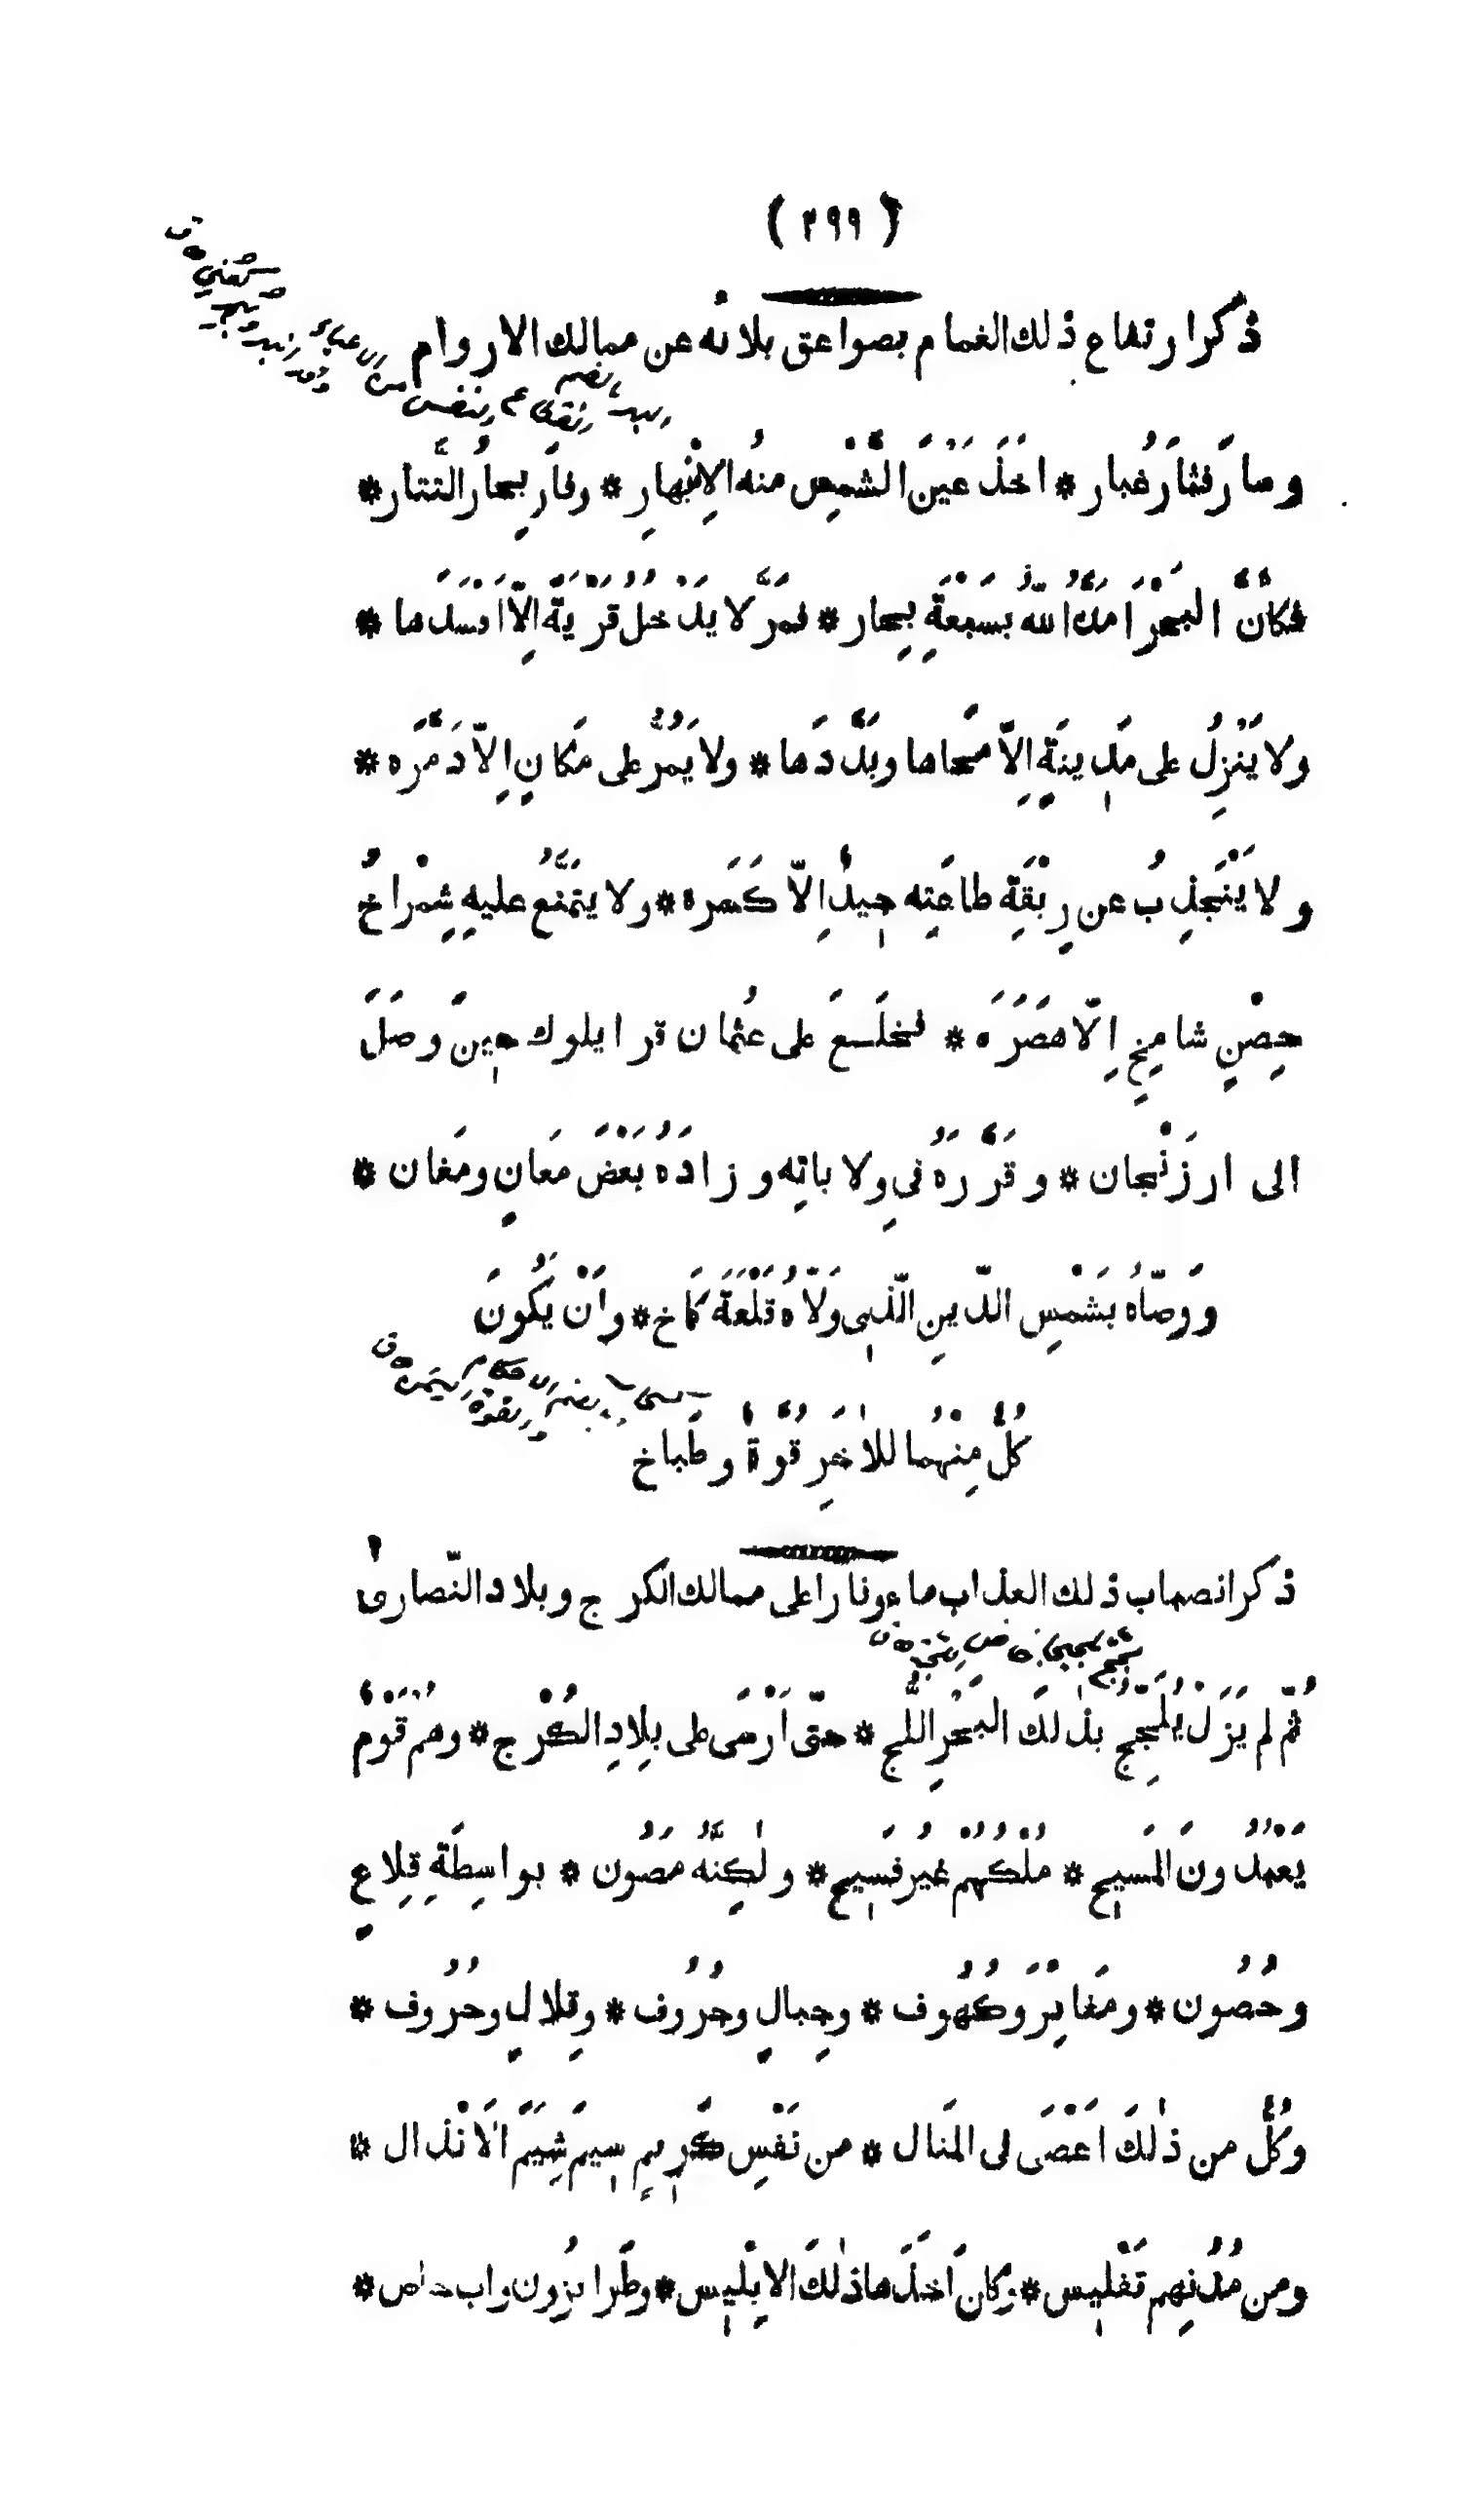 ( ٢٩٩ )
ذكر ارتفاع ذلك الغمام بصواعق بلائه عن ممالك الاروام
وصارَ فثارَ غُبار * اخَذَ عَيْنَ الشَّمْسِ منهُ الاِنْبِهارِ * وفارَ بِحارُ التَّتار *
فكانَّ البَحْرَ اَمَدَّهُ اللّٰهُ بسَبْعَةِ بِحار * فمَرَّ لا يدْخلُ قَرْيَةً اِلّا اَفْسَدَها *
ولا يَنْزِلُ على مَدِينَةٍ اِلّا مَحاها وبَدَّدَها * ولا يَمُرُّ على مَكانٍ اِلّا دَمَّرَه *
ولا يَنْجَذِبُ عن رِبْقَةِ طاعَتِه جِيدٌ اِلّا كَسَره * ولا يتمَنَّعُ عليهِ شِمْراخُ
حِصْنٍ شامِخٍ اِلّا هَصَرَه * فخلَعَ على عُثمان قرايلوك حِينَ وصَلَ
الى ارزَنْجان * وقرَّرَهُ فى وِلاياتِه وزادَهُ بَعْضَ مَعانٍ ومَغان *
ووَصّاهُ بشَمْسِ الدّينِ الّذِى وَلّاهُ قَلْعَةَ كَماخ * واَنْ يَكُونَ
كُلٌّ مِنْهُما للاٰخَرِ قُوّةً وطَباخ
ذكر انصباب ذلك العذاب ماء ونارا على ممالك الكرج وبلاد النّصارىٰ
ثُمّ لم يَزَلْ يُلَجِّجُ بذٰلكَ البَحْرِ اللُّج * حتّى اَرْسَى على بِلادِ الكُرْج * وهُم قَوْمٌ
يَعْبُدُونَ المَسِيح * مُلْكُهُمْ غيرُ فَسِيح * ولٰكِنَّهُ مَصُون * بواسِطَةِ قِلاعٍ
وحُصُون * ومَغايِرْ وكُهُوف * وجِبالٍ وجُرُوف * وقِلالٍ وحُرُوف *
وكُلٌّ من ذٰلكَ اَعْصَى لى المَنال * من نَفْسِ كَرِيمٍ سِيمَ شِيَمَ الاَنْذال *
ومن مُدُنِهم تَفْلِيس * وكانَ اَخَذَها ذٰلكَ الاِبْلِيس * وطَرابزُون واب خاص *